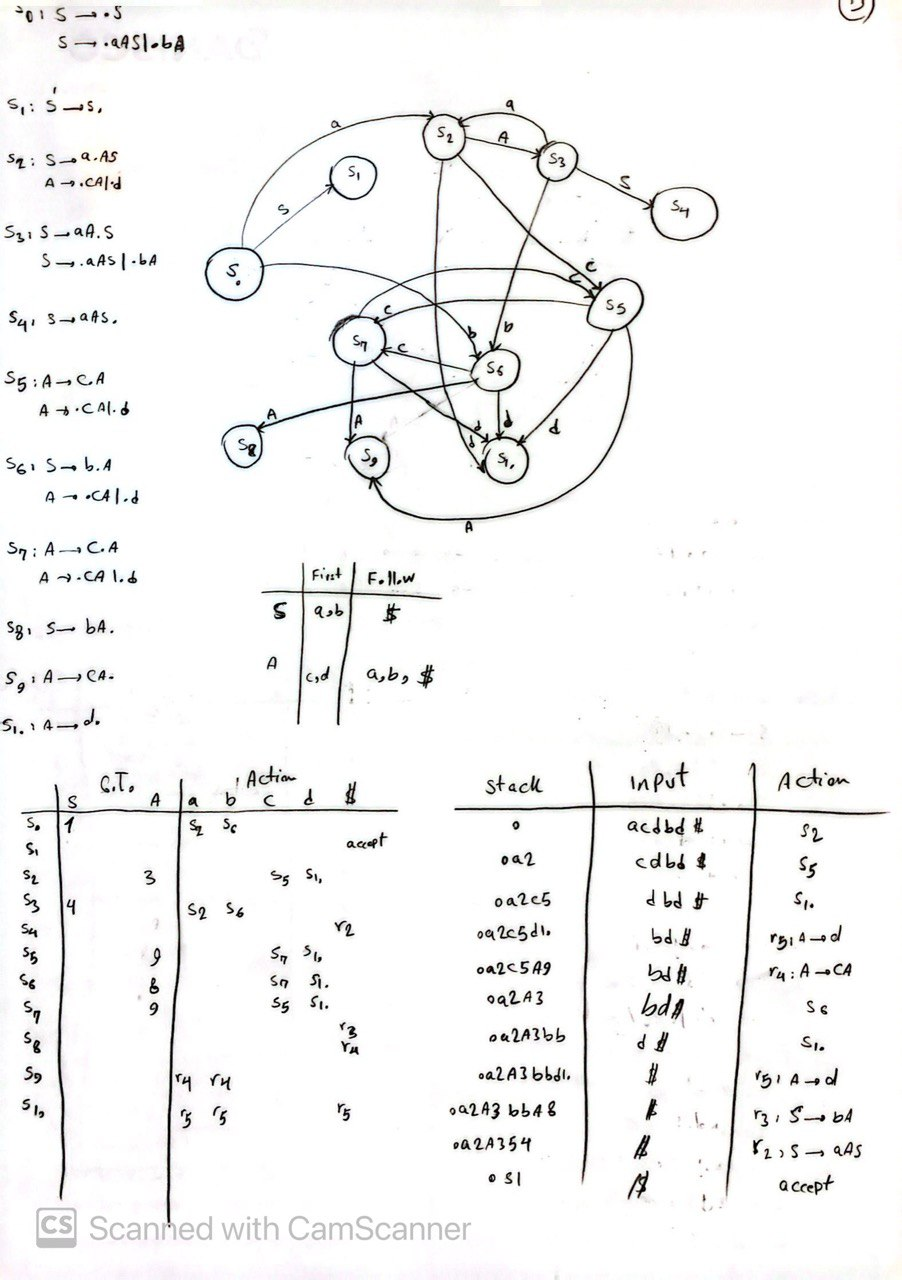 S → .S
S → .aAS|.bA
S1: S' → S.
S2: S → a.AS
A → .CA|.d
S3: S → aA.S
S → .aAS|.bA
S4: S → aAS.
S5: A → C.A
A → .CA|.d
S6: S → b.A
A → .CA|.d
S7: A → C.A
A → .CA|.d
S8: S → bA.
S9: A → CA.
S10: A → d.
a
a
A
S
S
c
c
c
c
b
b
d
d
d
d
A
A
A
S0
S1
S2
S3
S4
S5
S6
S7
S8
S9
S10
First Follow
S a,b $
A c,d a,b,$
G.T. Action
S A a b c d $
S0 1 S2 S6
S1 accept
S2 3 S5 S10
S3 4 S2 S6
S4 r2
S5 9 S7 S10
S6 8 S7 S10
S7 9 S5 S10
S8 r3
r4
S9 r4 r4
S10 r5 r5 r5
Stack Input Action
0 acdbd$ S2
0a2 cdbd$ S5
0a2c5 dbd$ S10
0a2c5d10 bd$ r5: A → d
0a2c5A9 bd$ r4: A → CA
0a2A3 bd$ S6
0a2A3bb d$ S10
0a2A3bbd10 $ r5: A → d
0a2A3bbA8 $ r3: S → bA
0a2A3S4 $ r2: S → aAS
0S1 $ accept
CS Scanned with CamScanner